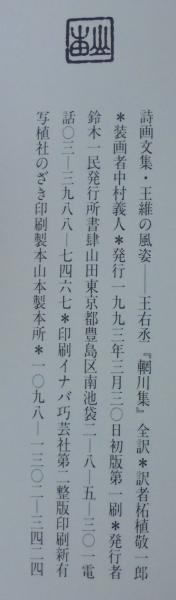 詩画文集・王維の風姿――王右丞『輞川集』全訳＊訳者柘植敬一郎
＊装画者中村義人＊発行一九九三年三月三〇日初版第一刷＊発行者
鈴木一民発行所書肆山田東京都豊島区南池袋二―八―五―三〇一電
話〇三―三九八八―七四六七＊印刷イナバ巧芸社第二整版印刷新有
写植社のざき印刷製本山本製本所＊一〇九八―一三〇二―三四二四